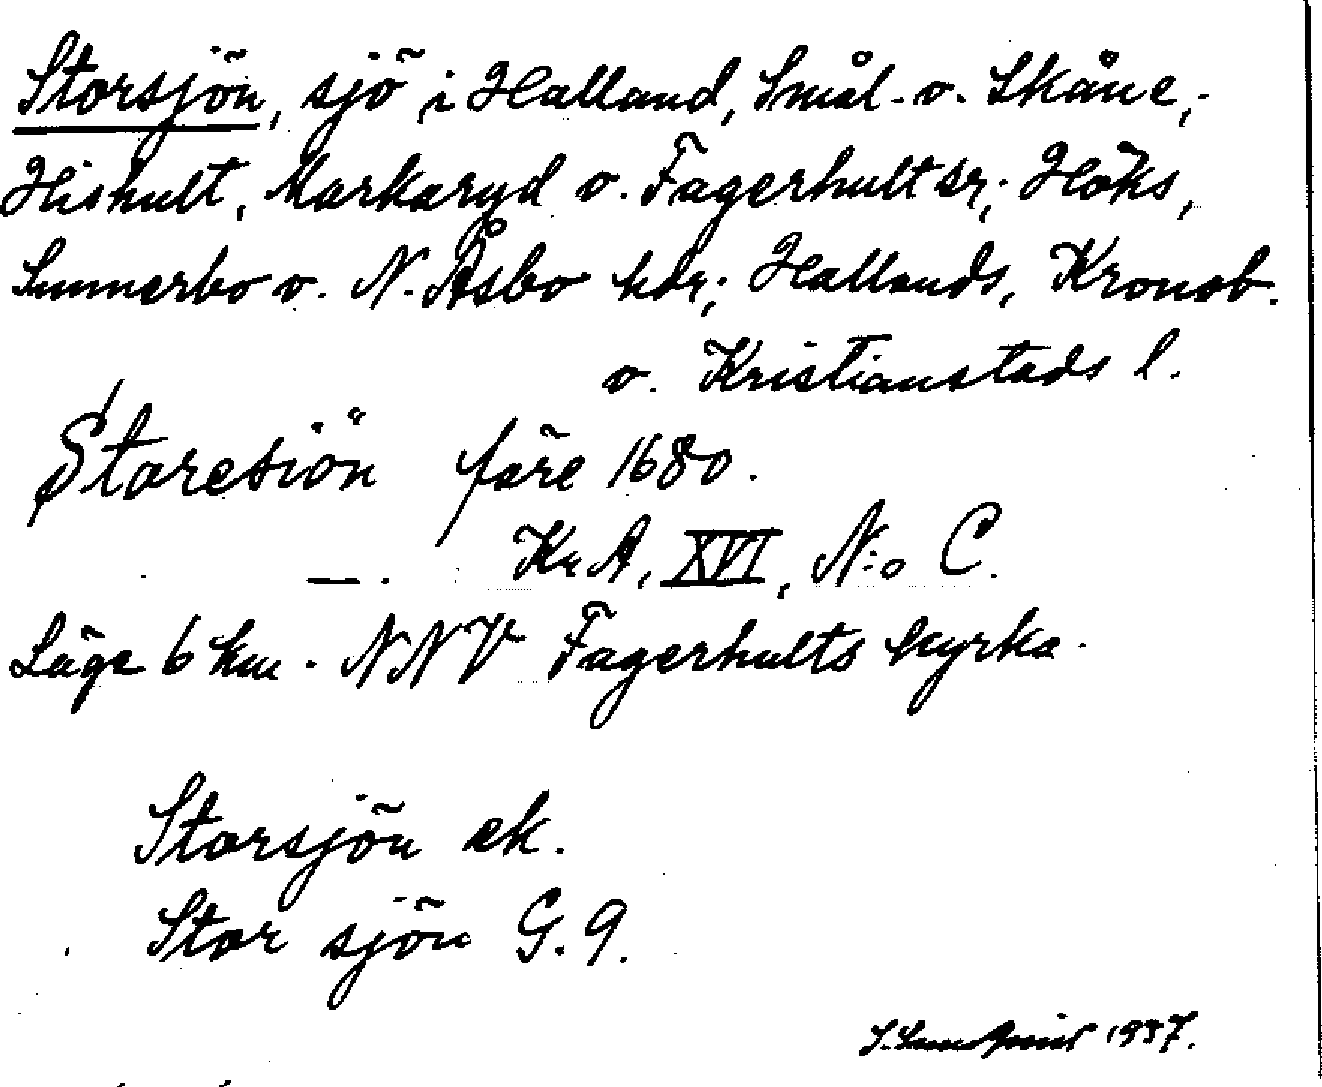 Storsjön, sjö i Halland, Smål. o. Skåne,
Hishult, Markaryd o. Fagerhult snr; Höks,
Sunnerbo o. N. Åsbo hdr; Hallands, Kronob.
o. Kristianstads l.
Storesiön före 1680.
KrA, XVI, N:o C.
Läge 6 km. NNV Fagerhults kyrka.
Storsjön ek.
Stor sjön G. 9.
1937.